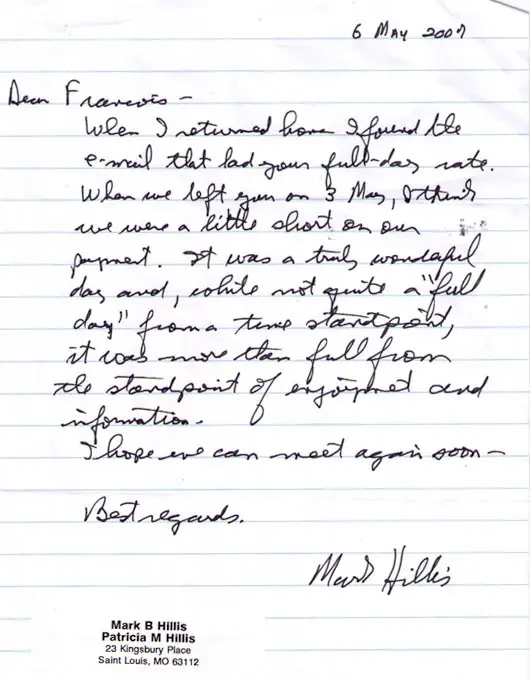 6 May 2007
Dear Francois -
When I returned home I found the
e-mail that had your full-day rate.
When we left you on 3 May, I think
we were a little short on our
payment. It was a truly wonderful
day and, while not quite a "full
day" from a time standpoint,
it was more than full from
the standpoint of enjoyment and
information.
I hope we can meet again soon -
Best regards.
Mark Hillis
Mark B Hillis
Patricia M Hillis
23 Kingsbury Place
Saint Louis, MO 63112